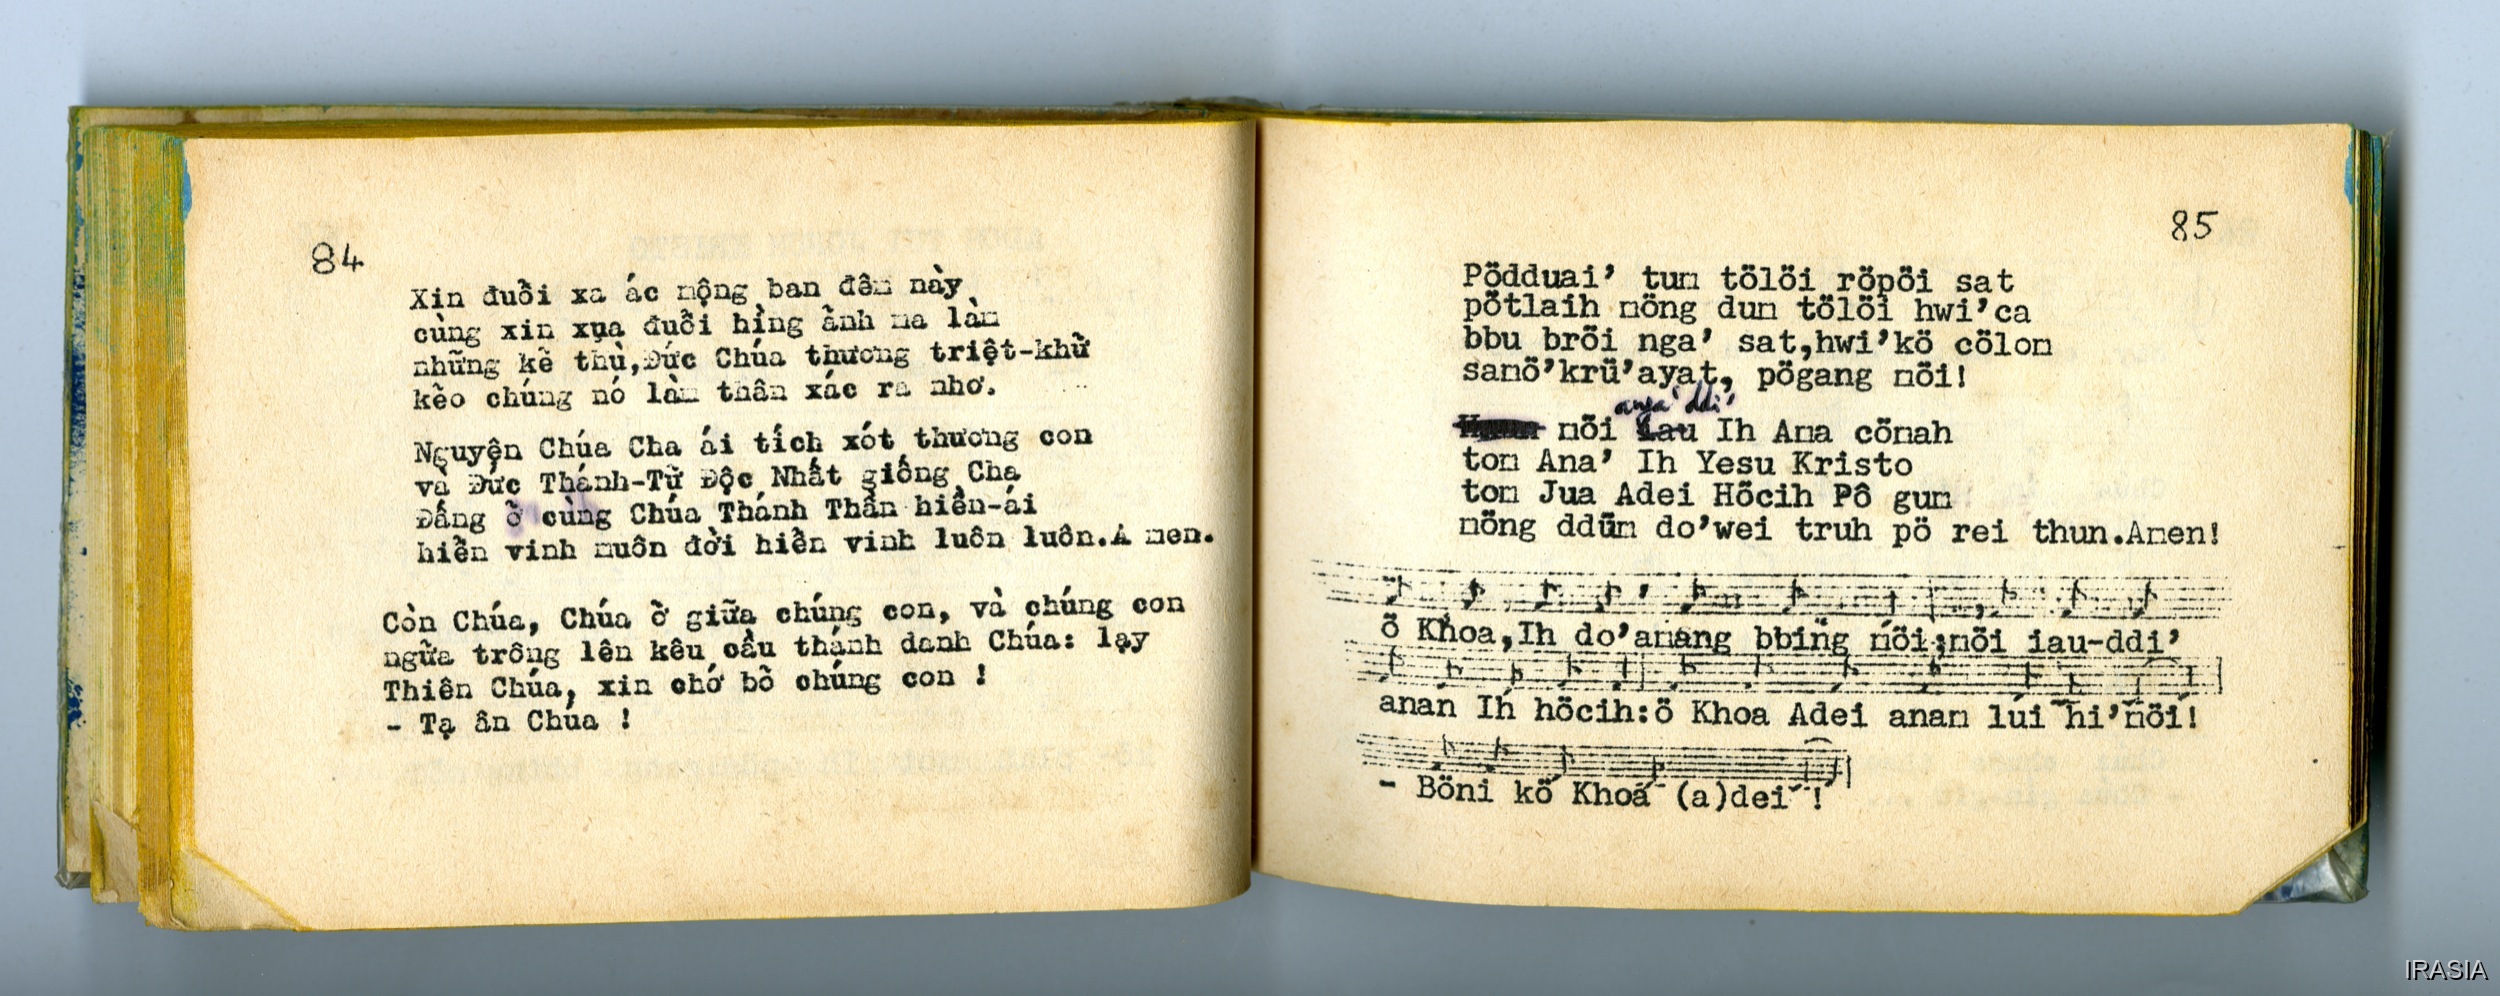 84
Xin đuổi xa ác mộng ban đêm này
cùng xin xua đuổi hình ảnh ma làm
những kẻ thù, Đức Chúa thương triệt-khử
kẻo chúng nó làm thân xác ra nhơ.
Nguyện Chúa Cha ái tích xót thương con
và Đức Thánh-Tử Độc Nhất giống Cha
Đấng ở cùng Chúa Thánh Thần hiền-ái
hiển vinh muôn đời hiển vinh luôn luôn.A men.
Còn Chúa, Chúa ở giữa chúng con, và chúng con
ngữa trông lên kêu cầu thánh danh Chúa: lạy
Thiên Chúa, xin chớ bỏ chúng con !
- Tạ ân Chúa !
85
Pödduai’ tum tölöi röpöi sat
pötlaih möng dum tölöi hwi’ca
bbu bröi nga’ sat,hwi’kö cölom
samö’krü’ayat, pögang möi!
anga’ ddi’
möi Iau Ih Ama cömah
tom Ana’ Ih Yesu Kristo
tom Jua Adei Höcih Pô gum
möng ddüm do’wei truh pö rei thun.Amen!
ö Khoa,Ih do’amang bbing möi;möi iau-ddi’
anan Ih höcih:ö Khoa Adei anam lúi hi’möi!
- Böni kö Khoa (a)dei !
IRASIA